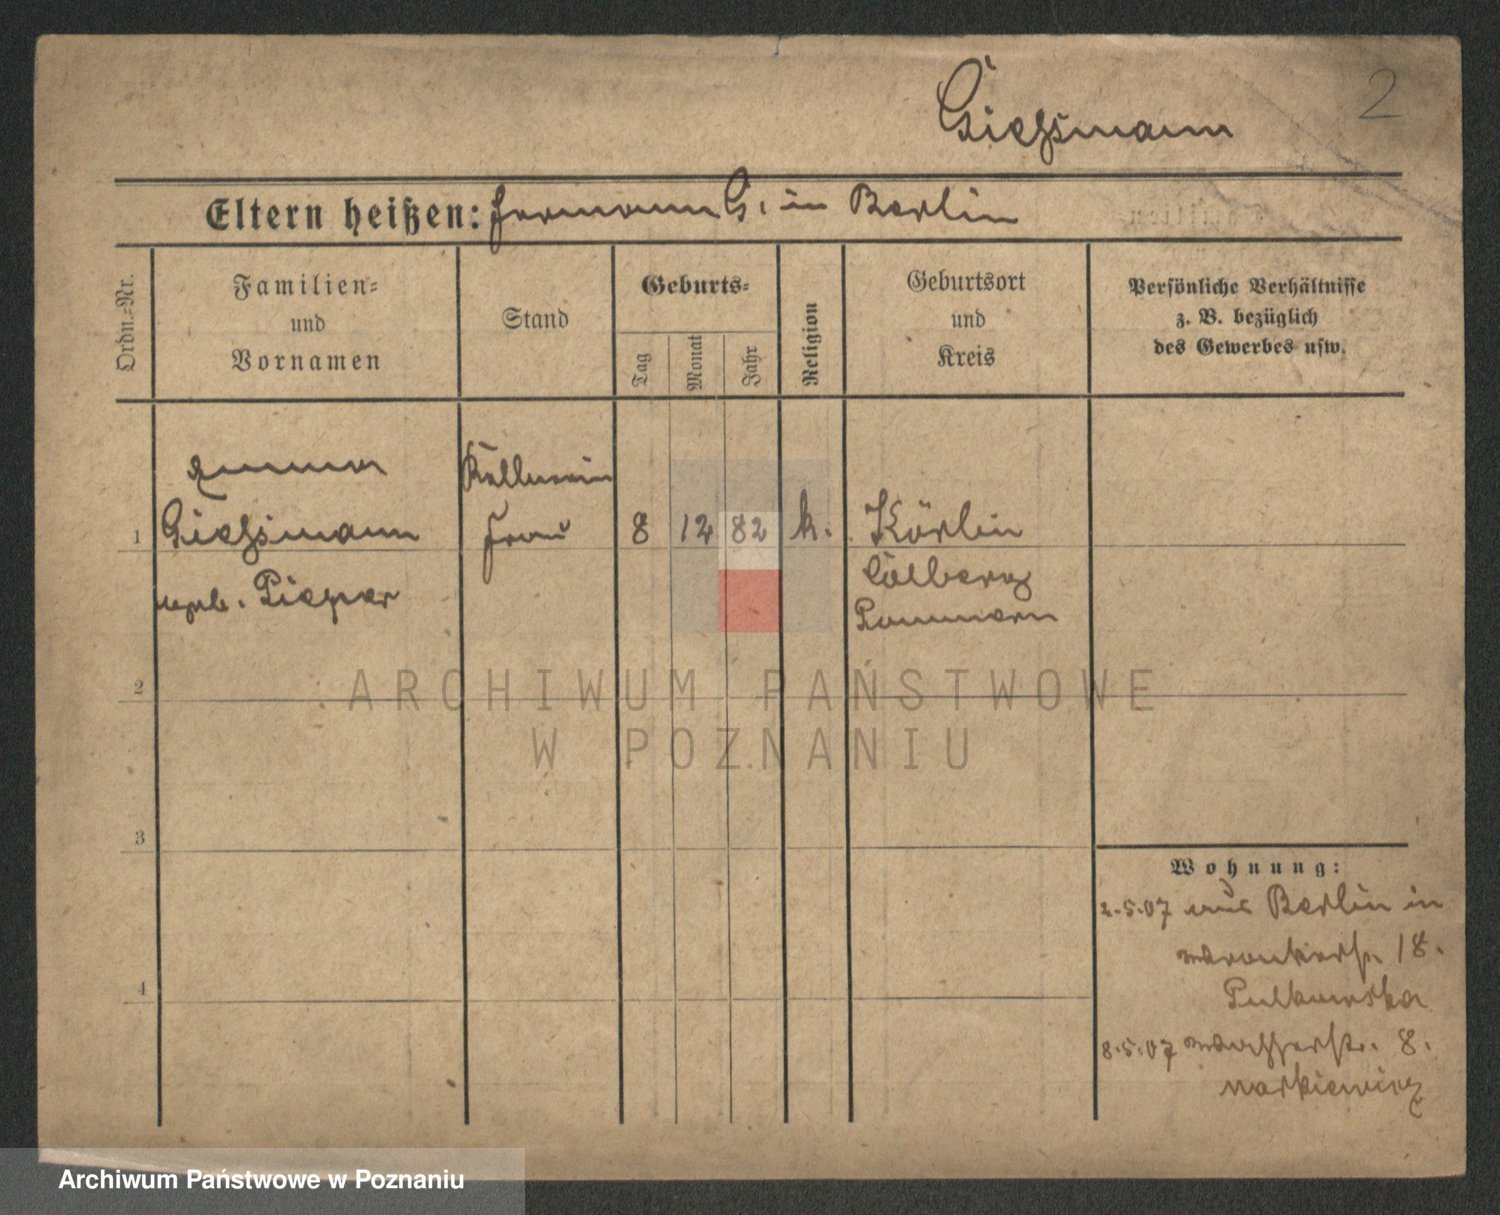 Gießmann
2
Eltern heißen: Hermann G. in Berlin
Ordn.-Nr.
Familien-
und
Vornamen
Stand
Geburts-
Tag
Monat
Jahr
Religion
Geburtsort
und
Kreis
Persönliche Verhältnisse
z. B. bezüglich
des Gewerbes usw.
Emma
Kellnerin
1 Gießmann Frau 8 12 82 k. Körlin
Colberg
geb. Pieper
Pommern
2
ARCHIWUM PAŃSTWOWE
W POZNANIU
3
Wohnung:
2.5.07 aus Berlin in
Wronkerstr. 18.
Pulkowska
4
8.5.07 Wasserstr. 8.
Markiewicz
Archiwum Państwowe w Poznaniu